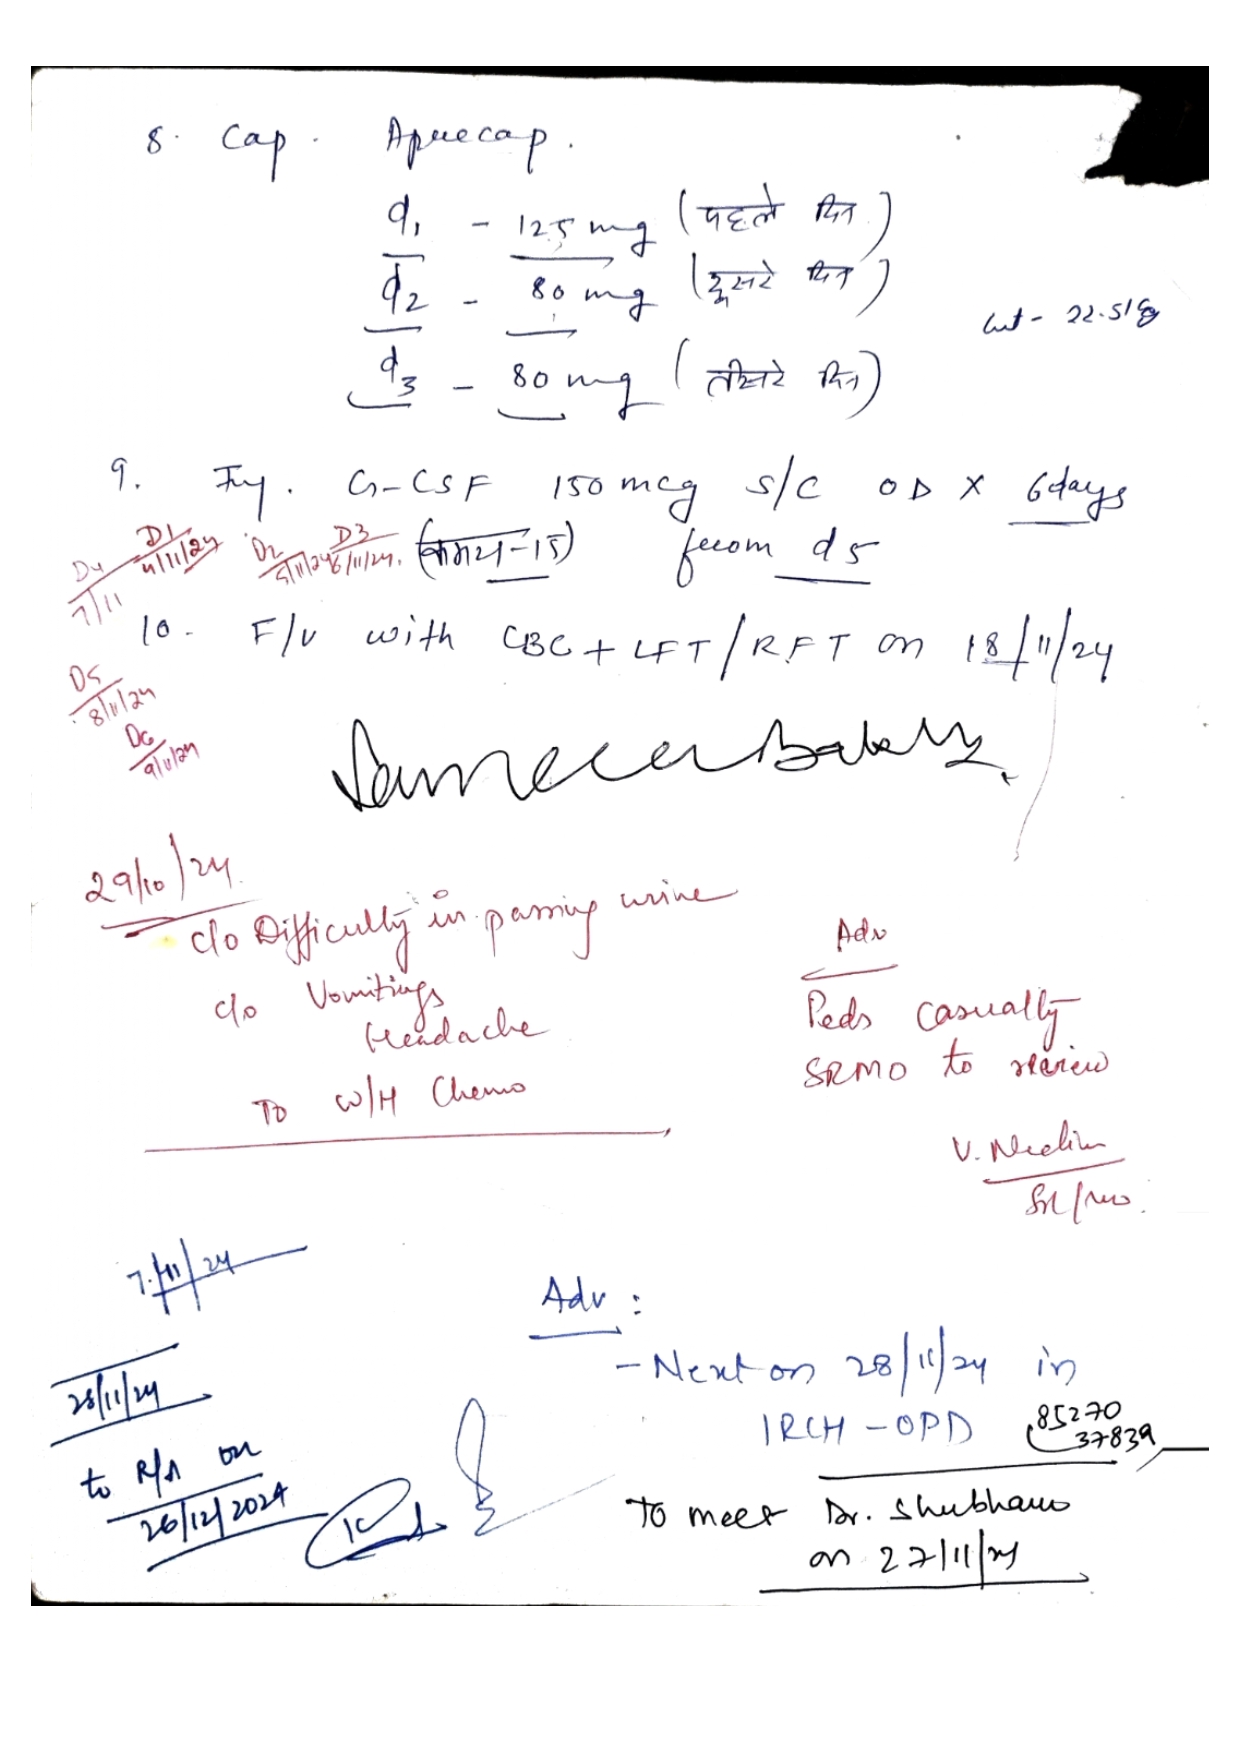 8. Cap. Aprecap.
d1 - 125 mg (पहले दिन)
d2 - 80 mg (दूसरे दिन)
wt - 22.51kg
d3 - 80 mg (तीसरे दिन)
9. Inj. G-CSF 150 mcg s/c OD x 6days
D1 4/11/24 D2 5/11/24 D3 6/11/24. from d5
D4 7/11
10. F/U with CBC + LFT/RFT on 18/11/24
D5 8/11/24
D6 9/11/24
29/10/24
c/o Difficulty in passing urine
Adv
c/o Vomitings
Headache
Peds casualty
SRMO to review
To W/H Chemo
7/11/24
Adv :
- Next on 28/11/24 in
28/11/24
IRCH - OPD 85270
37839
to R/A on
26/12/2024
To meet Dr. Shubham
on 27/11/24